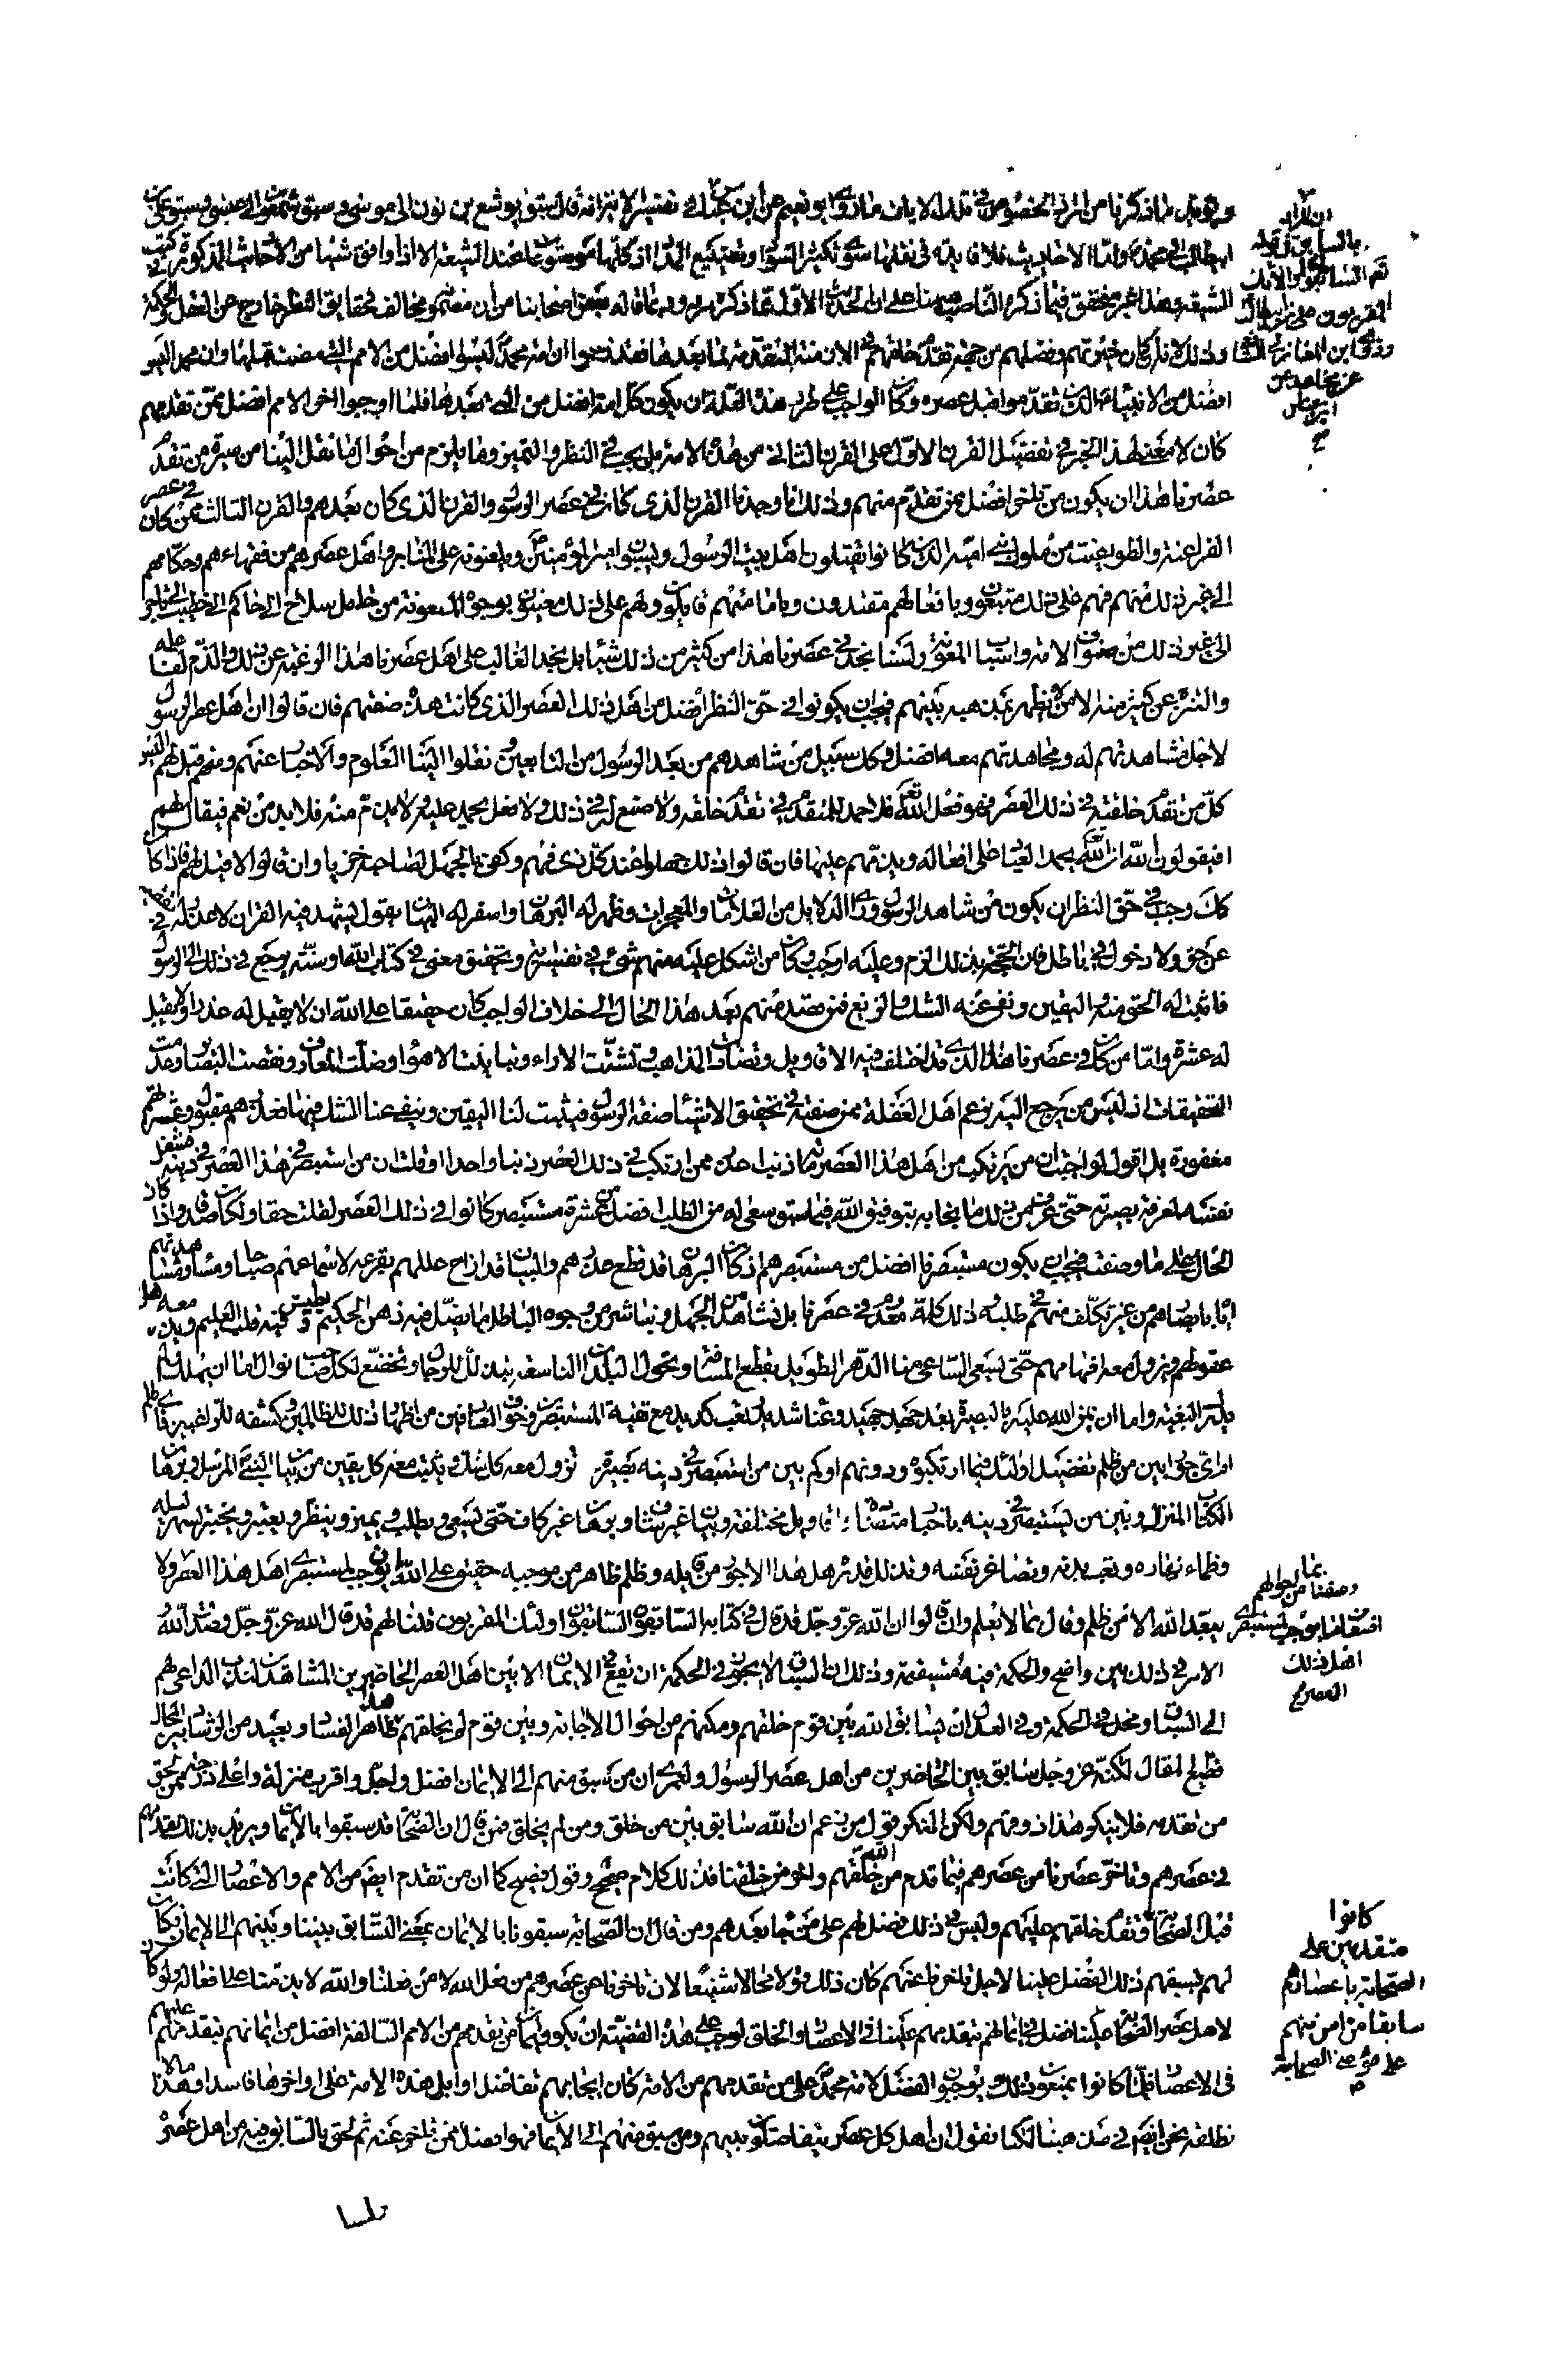 ويؤيد ما ذكرنا من ارادة الخصوص في تلك الايات ما رواه ابو نعيم عن ابن عباس في تفسير الاية انه قال سبق يوشع بن نون الى موسى وسبق شمعون الى عيسى وسبق علي بن
ابيطالب الى محمد واما الاحاديث فلا فايدة في نقلها سوى تكثير السواد وتضييع المداد اذ كلها موضوعات عند الشيعة
الشيعة وهذا غير محقق فيما ذكره الناصب هيهنا على ان الحديث الاول مما ذكره مردود بما قاله بعض اصحابنا من ان معناه مخالف لحقايق النظر خارج عن العدل والحكمة
وذلك لانه لو كان خيرتهم وفضلهم من جهة تقدم خلقهم في الازمنة المتقدمة لما بعدها فقد زعموا ان امة محمد ليسوا افضل من الامم التي مضت قبلها وان محمدا ليس
افضل من الانبياء الذين تقدموا قبل عصره وكان الواجب على طرد هذه العلة ان يكون كل امة افضل من التي بعدها فلما اوجبوا اخر الامم افضل ممن تقدمهم
كان لا معنى لهذا الخبر في تفضيل القرن الاول على القرن الثاني من هذه الامة بل يجب في النظر والتميز وما يلزم من احوال ما نقل الينا من سيرة من تقدم
عصرنا هذا ان يكون من تاخر افضل ممن تقدم منهم وذلك انا وجدنا القرن الذي كان في عصر الرسول والقرن الذي كان بعدهم والقرن الثالث ممن كان في عصر
الفراعنة والطواغيت من ملوك بني امية الذين كانوا يقتلون اهل بيت الرسول ويسبون امير المؤمنين ويلعنونه على المنابر واهل عصرهم من فقهاءهم وحكامهم
الى غير ذلك منهم فهم على ذلك متبعون وبافعالهم مقتدون وبامامتهم قايلون ولهم على ذلك معينون بوجوه المعونة من حامل سلاح الى حاكم الى خطيب الى تاجر
الى غير ذلك من صنوف الامة واسباب المعونة ولسنا نجد في عصرنا هذا من كثير من ذلك شيئا بل نجد الغالب على اهل عصرنا هذا الرغبة عن ذلك والذم لفاعله
والتنزه عن كثير منه الا من لا يظهر بمذهبه بينهم فيجب ان يكونوا في حق النظر افضل من اهل ذلك العصر الذي كانت هذه صفتهم فان قالوا ان اهل عصر الرسول
لاجل مشاهدتهم له ومجاهدتهم معه افضل وكك سبيل من شاهدهم من بعد الرسول من التابعين ونقلوا الينا العلوم والاخبار عنهم قيل لهم اليس
كل من تقدم خلقته في ذلك العصر فهو فعل الله تعالى فلا حمد للمتقدم في تقدم خلقه ولا صنع له في ذلك ولا فعل يحمد عليه ولا يذم منه فلا بد من نعم فيقال لهم
افتقولون ان الله تعالى يحمد العباد على افعاله ويذمهم عليها فان قالوا ذلك جهلوا عند كل ذي فهم وكفى بالجهل لصاحبه خزيا وان قالوا لا قيل لهم فاذا كان
كك وجب في حق النظر ان يكون من شاهد الرسول وراى الدلايل من العلامات والمعجزات وظهر له البرهان واسفر له البيان بقول يشهد فيه القران لا عذر له في تقصير
عن حق ولا دخول في باطل فان الحجة بذلك الزم وعليه اوجب وكان من اشكل عليه منهم شيء في تفسير اية وتحقيق معنى في كتاب الله او سنته يرجع في ذلك الى الرسول
فاثبت له الحق منه واليقين ونفى عنه الشك والزيغ فمن قصد منهم بعد هذا الحال الى خلاف الواجب كان حقيقا على الله ان لا يقبل له عذرا ولا يقيل
له عثرة واما من كان في عصرنا هذا الذي قد اختلف فيه الاقاويل وتضادت المذاهب وتشتت الاراء وتباينت الاهواء وضلت المعارف ونقصت البصاير وعدمت
التحقيقات اذ ليس من يرجع اليه بزعم اهل الغفلة ممن صفته في تحقيق الاشياء صفة الرسول فيثبت لنا اليقين وينفي عنا الشك فيها فعذرهم مقبول وعثرتهم
مغفورة بل اقول لو اجب ان من يرتكب من اهل هذا العصر مائة ذنب اعذر ممن ارتكب في ذلك العصر ذنبا واحدا او قلت ان من استبصر في هذا العصر في دينه مشغل
نفسه لمعرفة بصيرته حتى عرف من ذلك ما نجا به بتوفيق الله فيما سبق وسعى له من الطلب افضل من عشرة مستبصرين كانوا في ذلك العصر لقلت حقا ولكان صدقا واذا كان
الحال على ما وصفت فيجب ان يكون مستبصرنا افضل من مستبصرهم اذ كان البرهان قد قطع عذرهم والبيان قد ازاح عللهم بقرعه لاسماعهم صباحا ومساء ومشاهدتهم
اياه بابصارهم من غير تكلف منهم في طلبه وذلك كله معدوم في عصرنا بل نشاهد من الجهل ونباشر من وجوه الباطل ما يضل فيه ذهن الحكيم ويطيش في كنهه قلب العليم ويذهل معه
عقولهم ويزول معه افهامهم حتى يسعى الساعي منا الدهر الطويل يقطع المسافة ويتحول البلدان الناسعة يتذلل للرجال ويخضع لكل صاحب نوال اما ان يهلك ولم
يدرك البغية واما ان يمن الله عليه بالبصيرة بعد جهد جهيد وعناء شديد وتعب كديد مع تقية المستبصرين وخوف العارفين من اظهار ذلك للظالمين وكشفه للراغبين فاي ظلم
او اي جور ابين من ظلم تفضيل اولئك فيما ارتكبوه ودونهم او كم بين من استبصر في دينه بصيرة تزول معه كل شك ويثبت معه كل يقين من بيان النبي المرسل وبرهان
الكتاب المنزل وبين من يستبصر في دينه باخبار متضادة واقاويل مختلفة وبيان غير شاف وبرهان غير كاف حتى يسعى ويطلب ويميز وينظر ويعتبر ويختبر بسهر ليله
وظماء نهاره وتعب بدنه وتصاغر نفسه وتذلل قدره هل هذا الا جور من قايله وظلم ظاهر من موجبه حقيق على الله ان يوجب لمستبصري اهل هذا العصر ولا
يبعد الله الا من ظلم وقال بما لا يعلم وان قالوا ان الله عز وجل قد قال في كتابه السابقون السابقون اولئك المقربون قلنا لهم قد قال الله عز وجل وصدق الله
الامر في ذلك بين واضح والحكمة فيه مستقيمة وذلك ان السباق لا يجوز في الحكمة ان يقع في الايمان الا بين اهل العصر الحاضرين المشاهدين لندب الداعي لهم
الى السباق ومحال في الحكمة وفي العدل ان يسابق الله بين قوم خلقهم ومكنهم من احوال الاجابة وبين قوم لم يخلقهم هذا ظاهر الفساد وبعيد من الرشاد بين المحال
فظيع المقال لكنه عز وجل سابق بين الحاضرين من اهل عصر الرسول ولعمري ان من سبق منهم الى الايمان افضل واجل واقرب منزلة واعلى درجة ممن لحق
من تقدمه فلا ينكر هذا ذو فهم ولكن المنكر قول من زعم ان الله سابق بين من خلق ومن لم يخلق فمن قال ان الصحابة قد سبقوا بالايمان ويريد بذلك تقدمهم
في عصرهم وتاخر عصرنا من عصرهم فيما قدم الله من خلقهم واخر من خلقنا فذلك كلام صحيح وقول فصيح كما ان من تقدم ايض من الامم والاعصار التي كانت
قبل الصحابة وتقدم خلقهم عليهم وليس في ذلك فضل لهم على من جاء بعدهم ومن قال ان الصحابة سبقونا بالايمان بمعنى السابق بيننا وبينهم الى الايمان وكان
لهم بسبقهم ذلك الفضل علينا لاجل تاخرنا عنهم كان ذلك قولا محالا شنيعا لان تاخرنا عن عصرهم من فعل الله لا من فعلنا والله لا يذمنا على افعاله ولو كان
لاهل عصر الصحابة علينا فضل في ايمانهم بتقدمهم علينا في الاعصار والخلق لوجب على هذه القضية ان يكون ايمان من تقدمهم من الامم السالفة افضل من ايمانهم بتقدمهم عليهم
في الاعصار فلما كانوا يمنعون ذلك ويوجبون الفضل لامة محمد على من تقدمهم من الامم كان ايجابهم تفاضل اوايل هذه الامة على اواخرها فاسدا وهذا ما لا
نطلقه نحن ايض في مذهبنا لكنا نقول ان اهل كل عصر يتفاضلون بينهم ومن سبق منهم الى الايمان فهو افضل ممن تاخر عنه ثم لحق بالسابق فيه من اهل عصره
بما
وصفنا من احوالهم
اضعاف ما يوجب لمستبصري
اهل ذلك
العصر صح
كانوا
متقدمين على
الصحابة باعصارهم
سابقا من امن منهم
على من امن من الصحابة